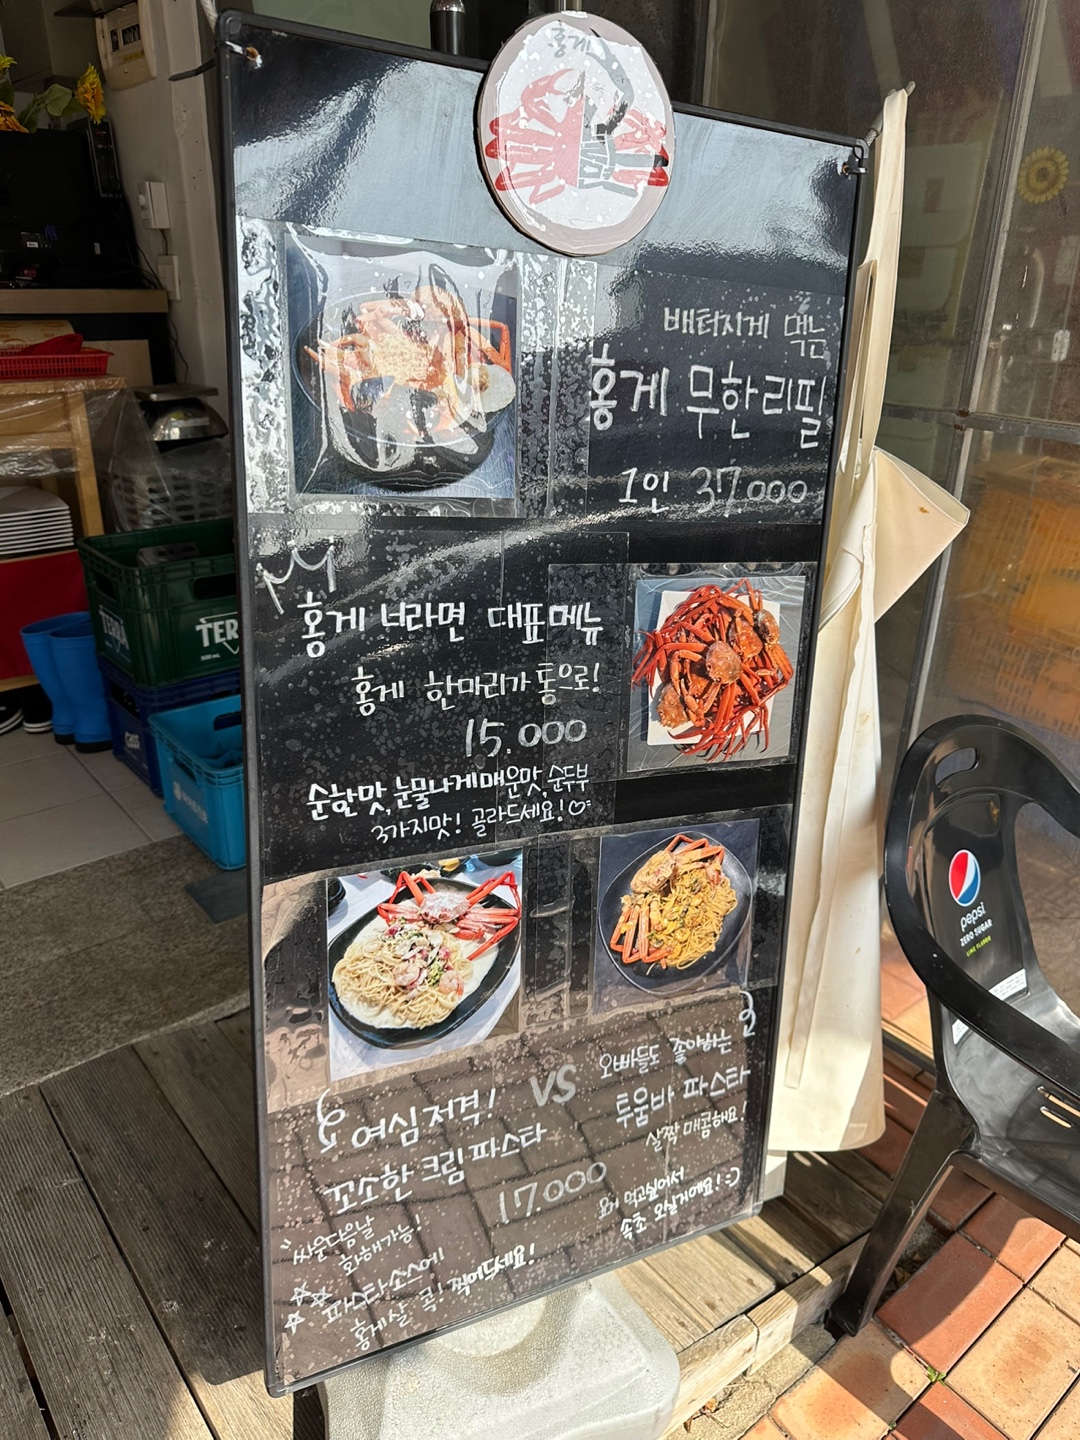 홍게
배터지게 먹는
홍게 무한리필
1인 37.000
홍게 너라면 대표메뉴
홍게 한마리가 통으로!
15.000
순한맛, 눈물나게매운맛, 순두부
3가지맛! 골라드세요!
여심저격!
꼬소한 크림파스타
VS
오빠들도 좋아하는
투움바 파스타
살짝 매콤해요!
17.000
싸운다음날
화해가능!
파스타소스에
홍게살 콕! 찍어드세요!
요거 먹고싶어서
속초 오실거에요!
TERRA
500 mL
TER
Cass
pepsi
ZERO SUGAR
LIME FLAVOR